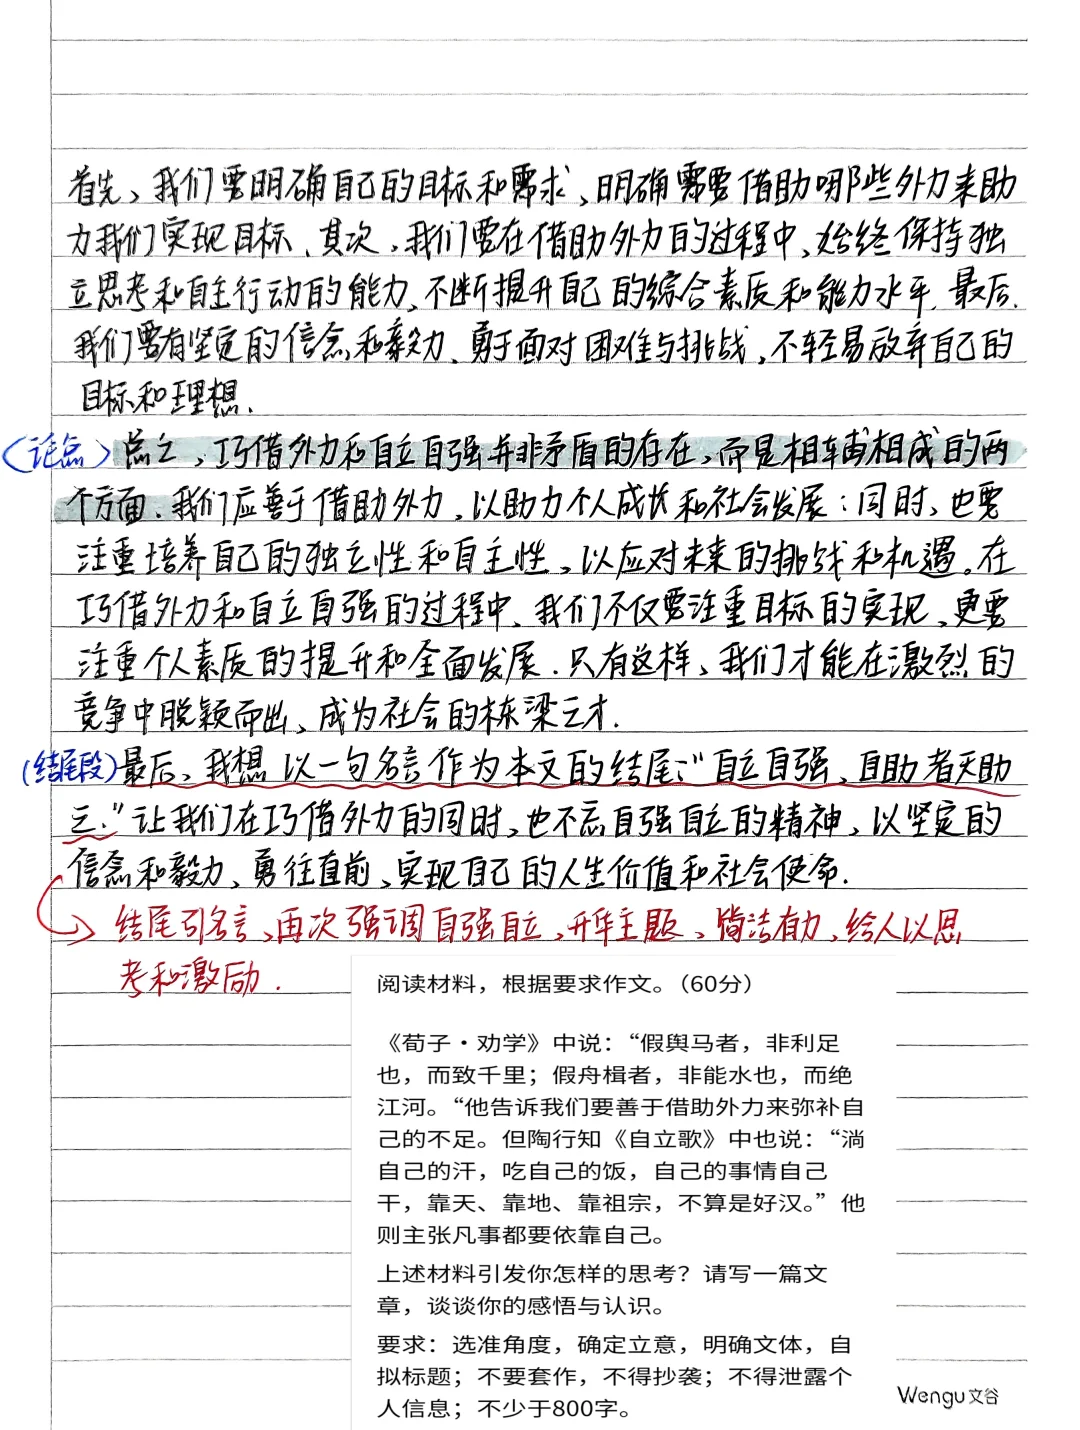 首先、我们要明确自己的目标和需求、明确需要借助哪些外力来助
力我们实现目标、其次、我们要在借助外力的过程中、始终保持独
立思考和自主行动的能力、不断提升自己的综合素质和能力水平.最后.
我们要有坚定的信念和毅力、勇于面对困难与挑战、不轻易放弃自己的
目标和理想.
(论点)总之、巧借外力和自立自强并非矛盾的存在、而是相辅相成的两
个方面.我们应善于借助外力、以助力个人成长和社会发展;同时、也要
注重培养自己的独立性和自主性、以应对未来的挑战和机遇。在
巧借外力和自立自强的过程中、我们不仅要注重目标的实现、更要
注重个人素质的提升和全面发展.只有这样、我们才能在激烈的
竞争中脱颖而出、成为社会的栋梁之才.
(结尾段)最后、我想以一句名言作为本文的结尾:“自立自强、自助者天助
之.”让我们在巧借外力的同时、也不忘自强自立的精神、以坚定的
信念和毅力、勇往直前、实现自己的人生价值和社会使命.
结尾引名言、再次强调自强自立、升华主题、简洁有力、给人以思
考和激励.
阅读材料，根据要求作文。（60分）
《荀子·劝学》中说：“假舆马者，非利足
也，而致千里；假舟楫者，非能水也，而绝
江河。“他告诉我们要善于借助外力来弥补自
己的不足。但陶行知《自立歌》中也说：“淌
自己的汗，吃自己的饭，自己的事情自己
干，靠天、靠地、靠祖宗，不算是好汉。”他
则主张凡事都要依靠自己。
上述材料引发你怎样的思考？请写一篇文
章，谈谈你的感悟与认识。
要求：选准角度，确定立意，明确文体，自
拟标题；不要套作，不得抄袭；不得泄露个
人信息；不少于800字。
Wengu文谷